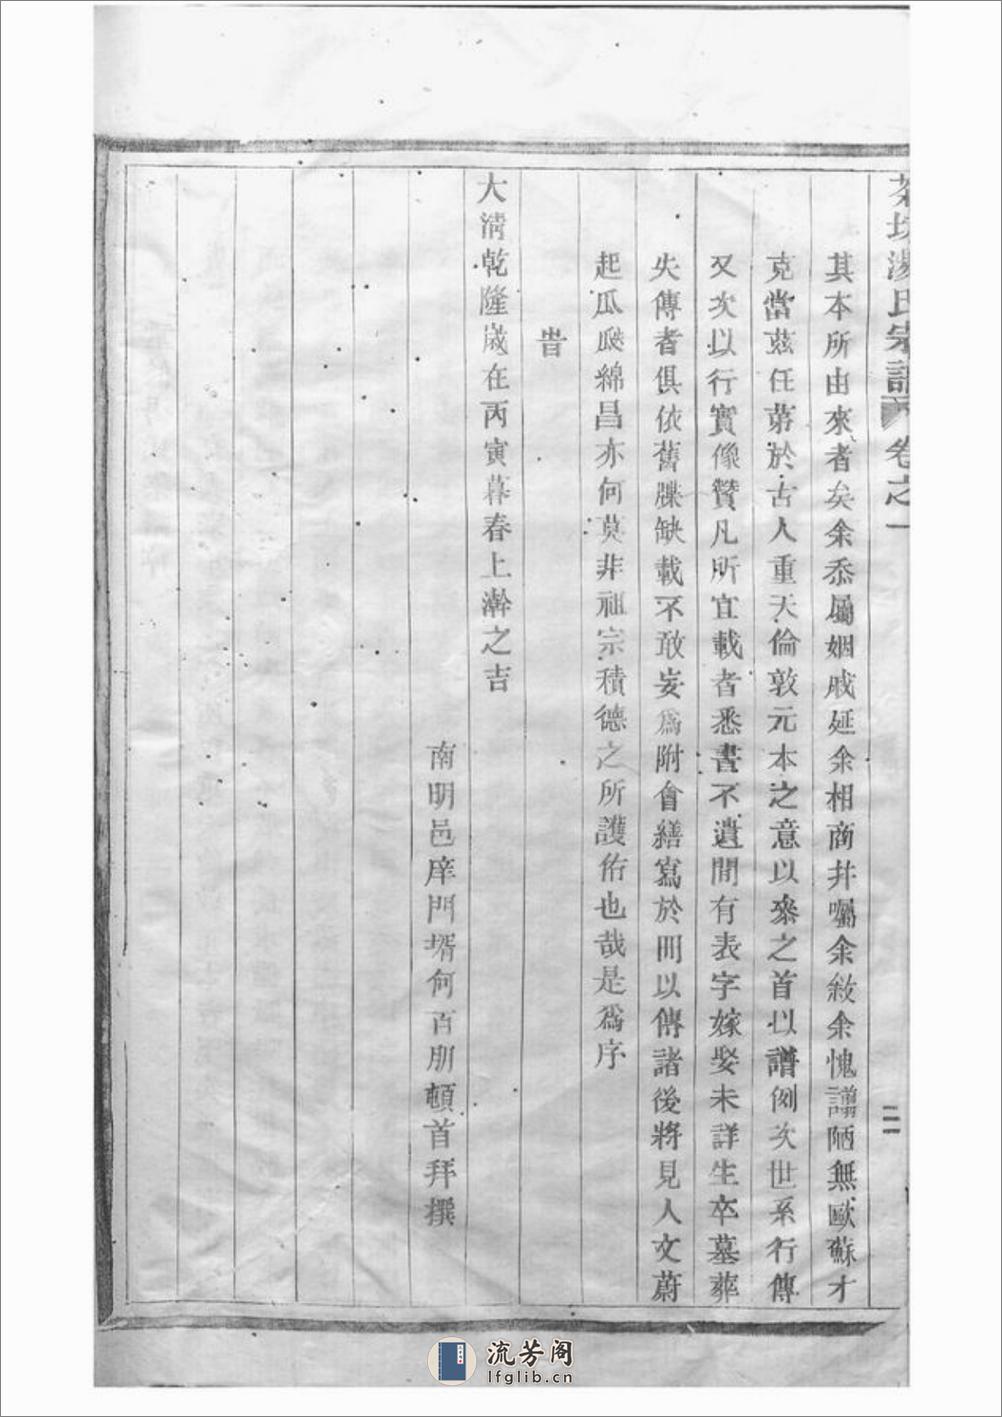 茶坊湯氏宗譜 卷之一 二
其本所由來者矣余忝屬姻戚延余相商并囑余敘余愧譾陋無歐蘇才
克當茲任第於古人重天倫敦元本之意以弁之首以譜例次世系行傳
又次以行實像贊凡所宜載者悉書不遺間有表字嫁娶未詳生卒墓葬
失傳者俱依舊牒缺載不敢妄爲附會繕寫於冊以傳諸後將見人文蔚
起瓜瓞綿昌亦何莫非祖宗積德之所護佑也哉是爲序
旹
大清乾隆歲在丙寅暮春上澣之吉
南明邑庠門壻何百朋頓首拜撰
流芳阁
lfglib.cn